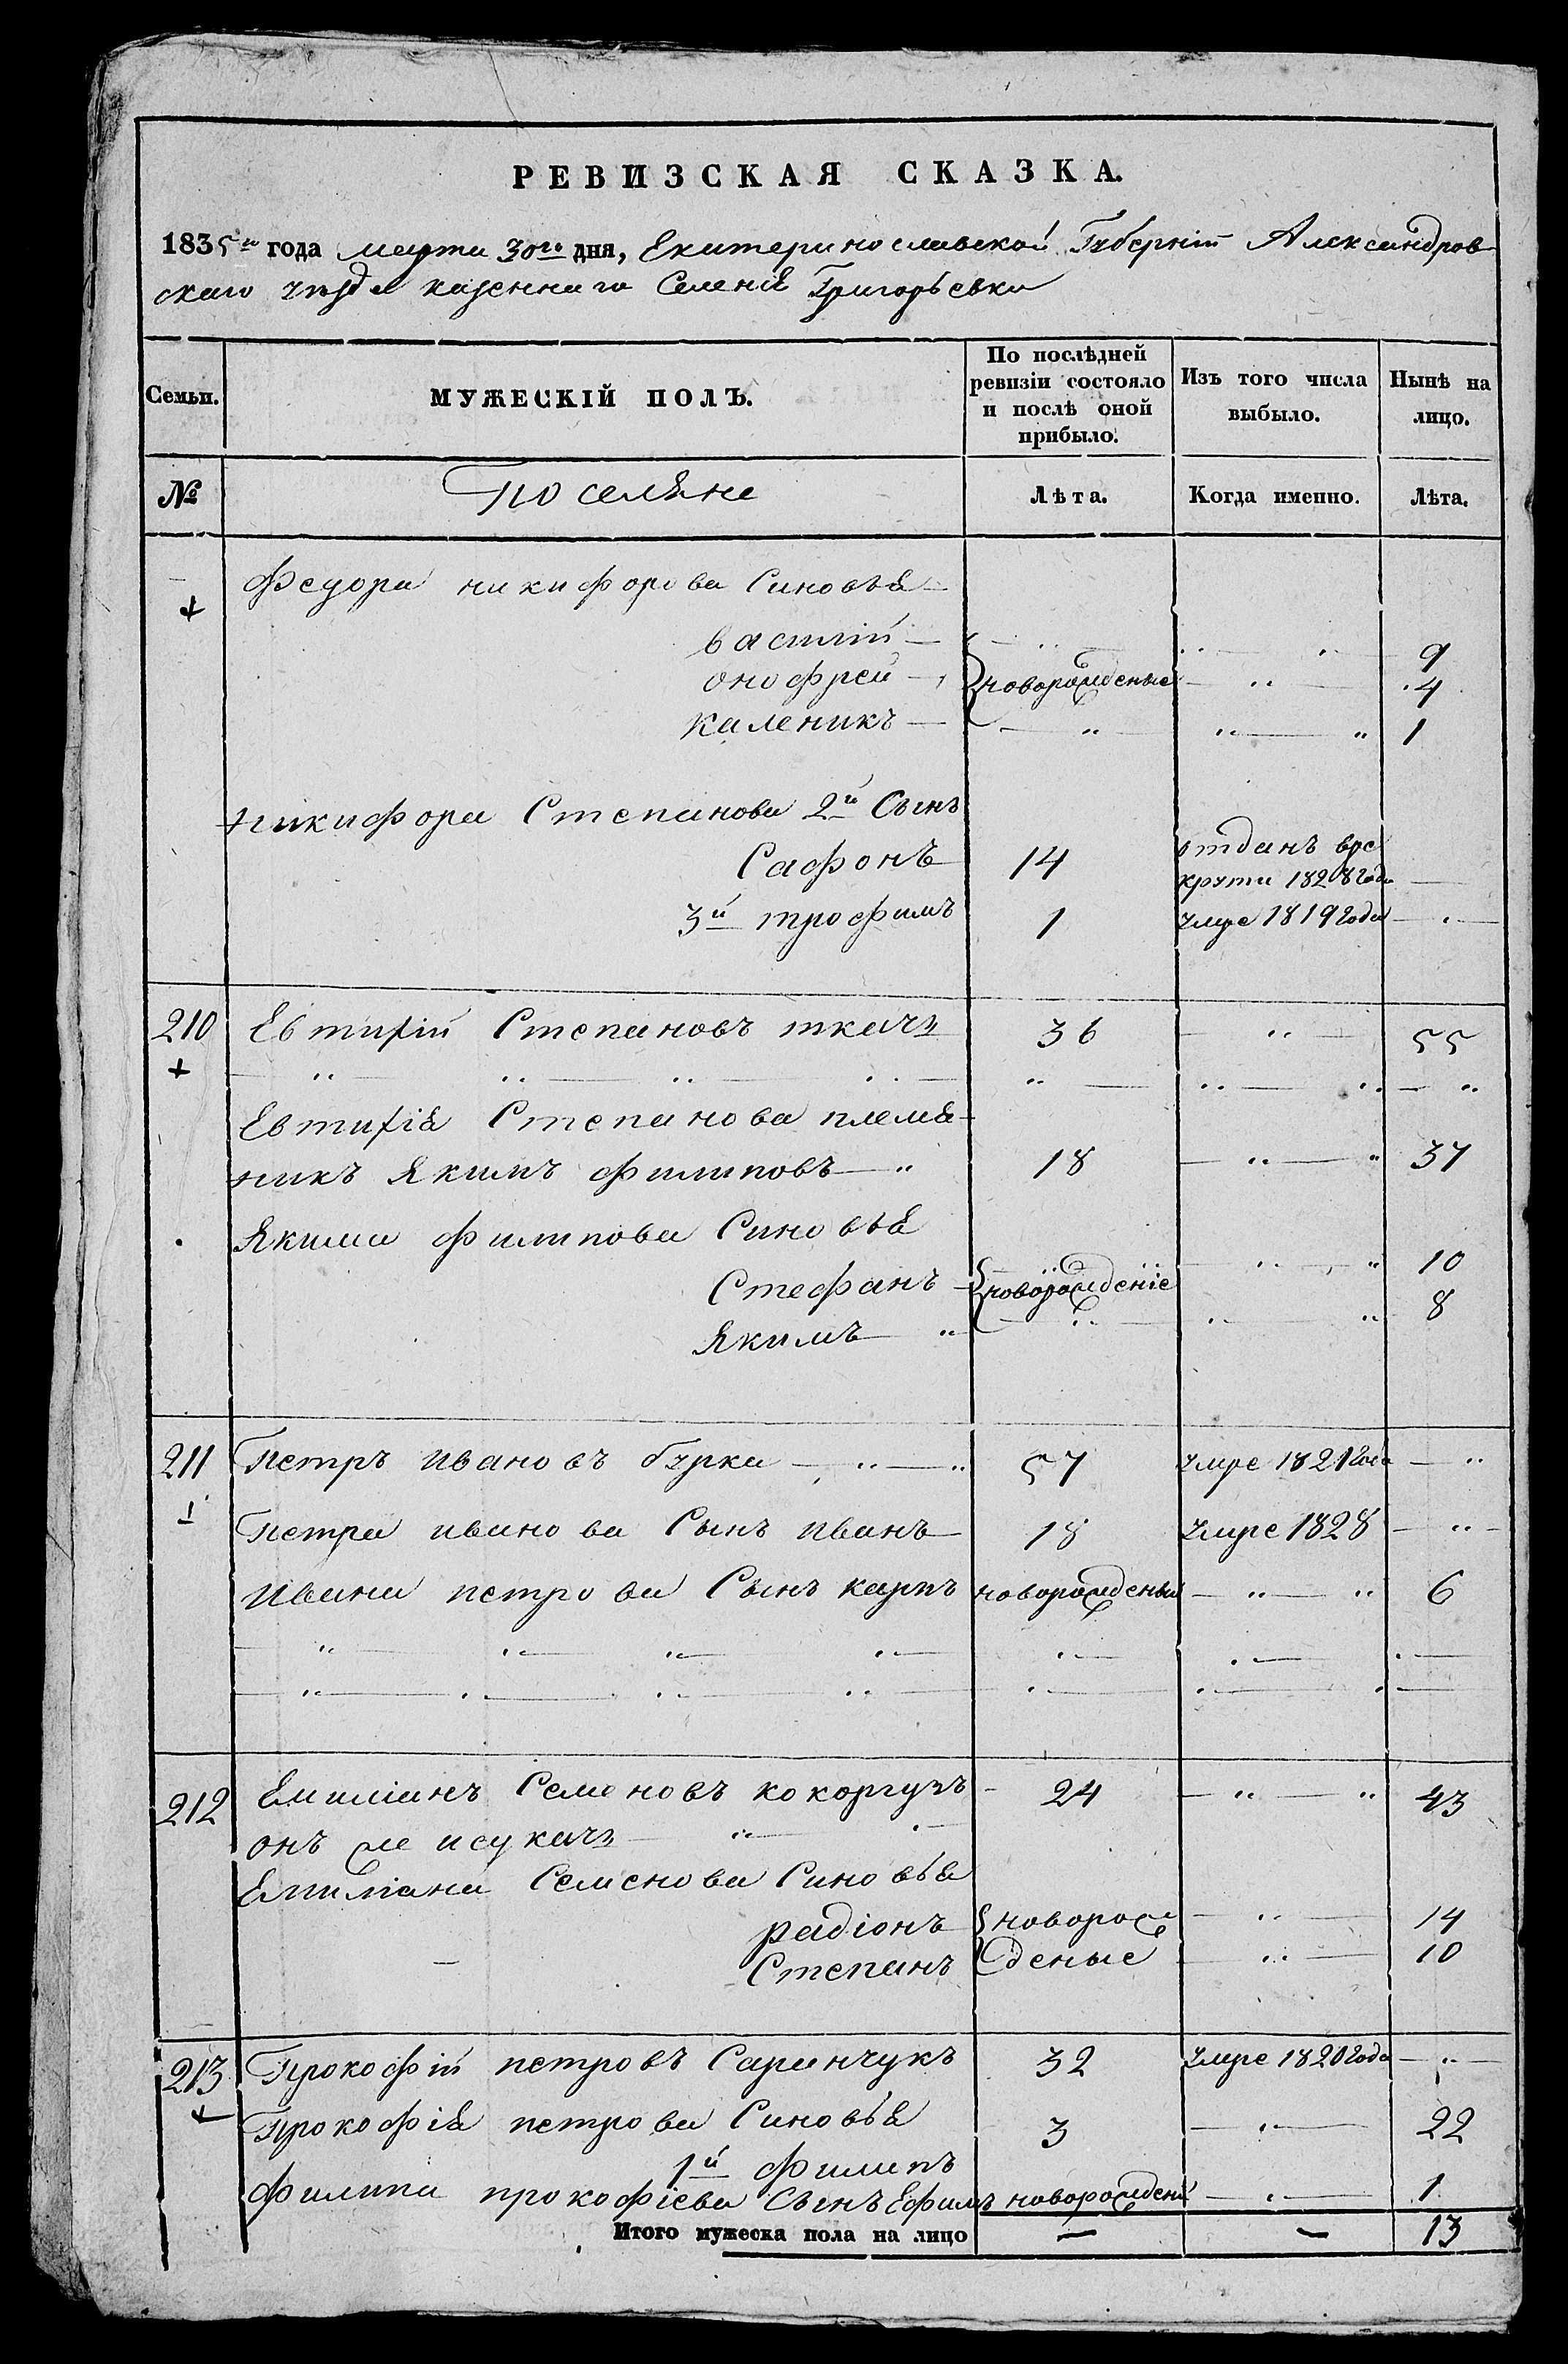 РЕВИЗСКАЯ СКАЗКА.
1835го года марта 30го дня, Екатеринославской Губерніи Александров
скаго уезда казеннаго Селенія Григорьевки
Семьи. МУЖЕСКІЙ ПОЛЪ. По послѣдней ревизіи состояло и послѣ оной прибыло. Изъ того числа выбыло. Нынѣ на лицо.
№ Поселяне Лѣта. Когда именно. Лѣта.
Федора никифорова Синовья
василій 9
онофрей новорожденые 4
каленикъ 1
никифора Степанова 2й Сынъ
Сафонъ 14 отданъ вре крути 1828 года
3й трофимъ 1 умре 1819 года
210 Евтихій Степановъ ткачъ 36 55
Евтихія Степанова племя
никъ Якимъ филиповъ 18 37
Якима филипова Синовья
Стефанъ новорожденіе 10
Якимъ 8
211 Петръ ивановъ бурка 57 умре 1821 года
Петра иванова Сынъ иванъ 18 умре 1828
Ивана петрова Сынъ карпъ новорожденый 6
212 Емиліанъ Семеновъ кокоргузъ 24 43
онъ же исукачъ
Емиліана Семенова Синовья
радіонъ новорож 14
Степанъ деные 10
213 Прокофій петровъ Саранчукъ 32 умре 1820 года
Прокофія петрова Синовья 3 22
1й филипъ
филипа прокофіева Сынъ Ефимъ новорождены 1
Итого мужеска пола на лицо — — 13